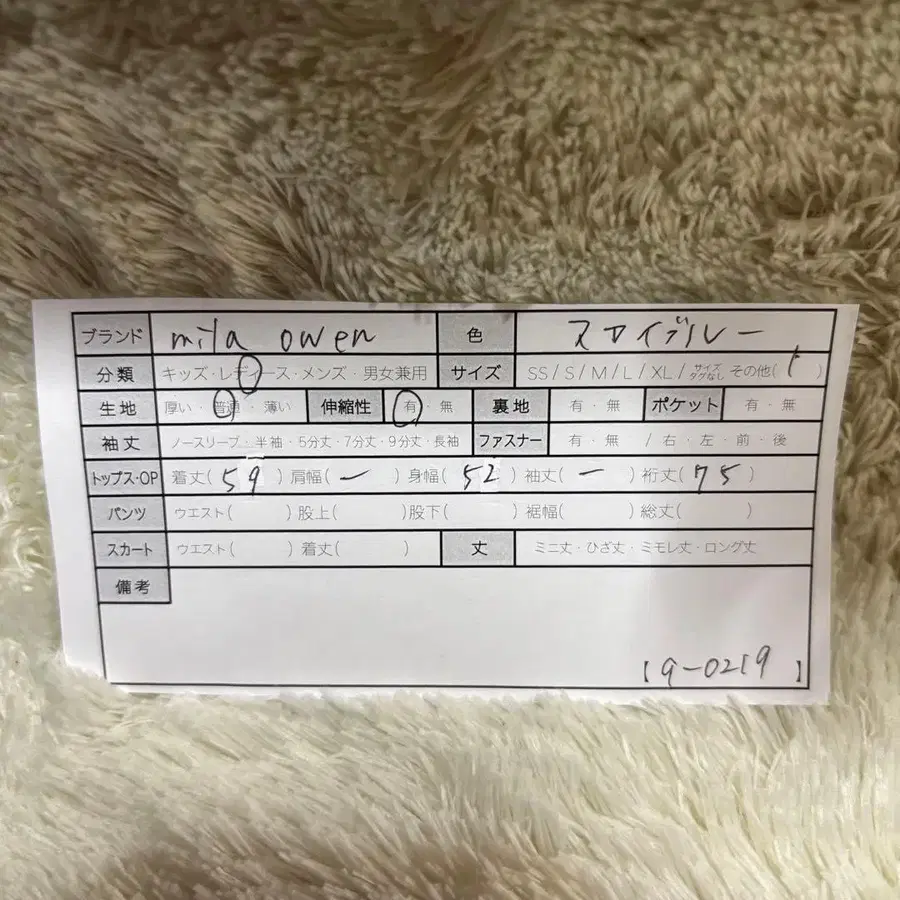 ブランド mila owen 色 スカイブルー
分類 キッズ・レディース・メンズ・男女兼用 サイズ SS / S / M / L / XL / サイズタグなし その他( 1 )
生地 厚い・普通・薄い 伸縮性 有・無 裏地 有・無 ポケット 有・無
袖丈 ノースリーブ・半袖・5分丈・7分丈・9分丈・長袖 ファスナー 有・無 / 右・左・前・後
トップス・OP 着丈( 59 ) 肩幅( ー ) 身幅( 52 ) 袖丈( ー ) 裄丈( 75 )
パンツ ウエスト( ) 股上( ) 股下( ) 裾幅( ) 総丈( )
スカート ウエスト( ) 着丈( ) 丈 ミニ丈・ひざ丈・ミモレ丈・ロング丈
備考
【9-0219】